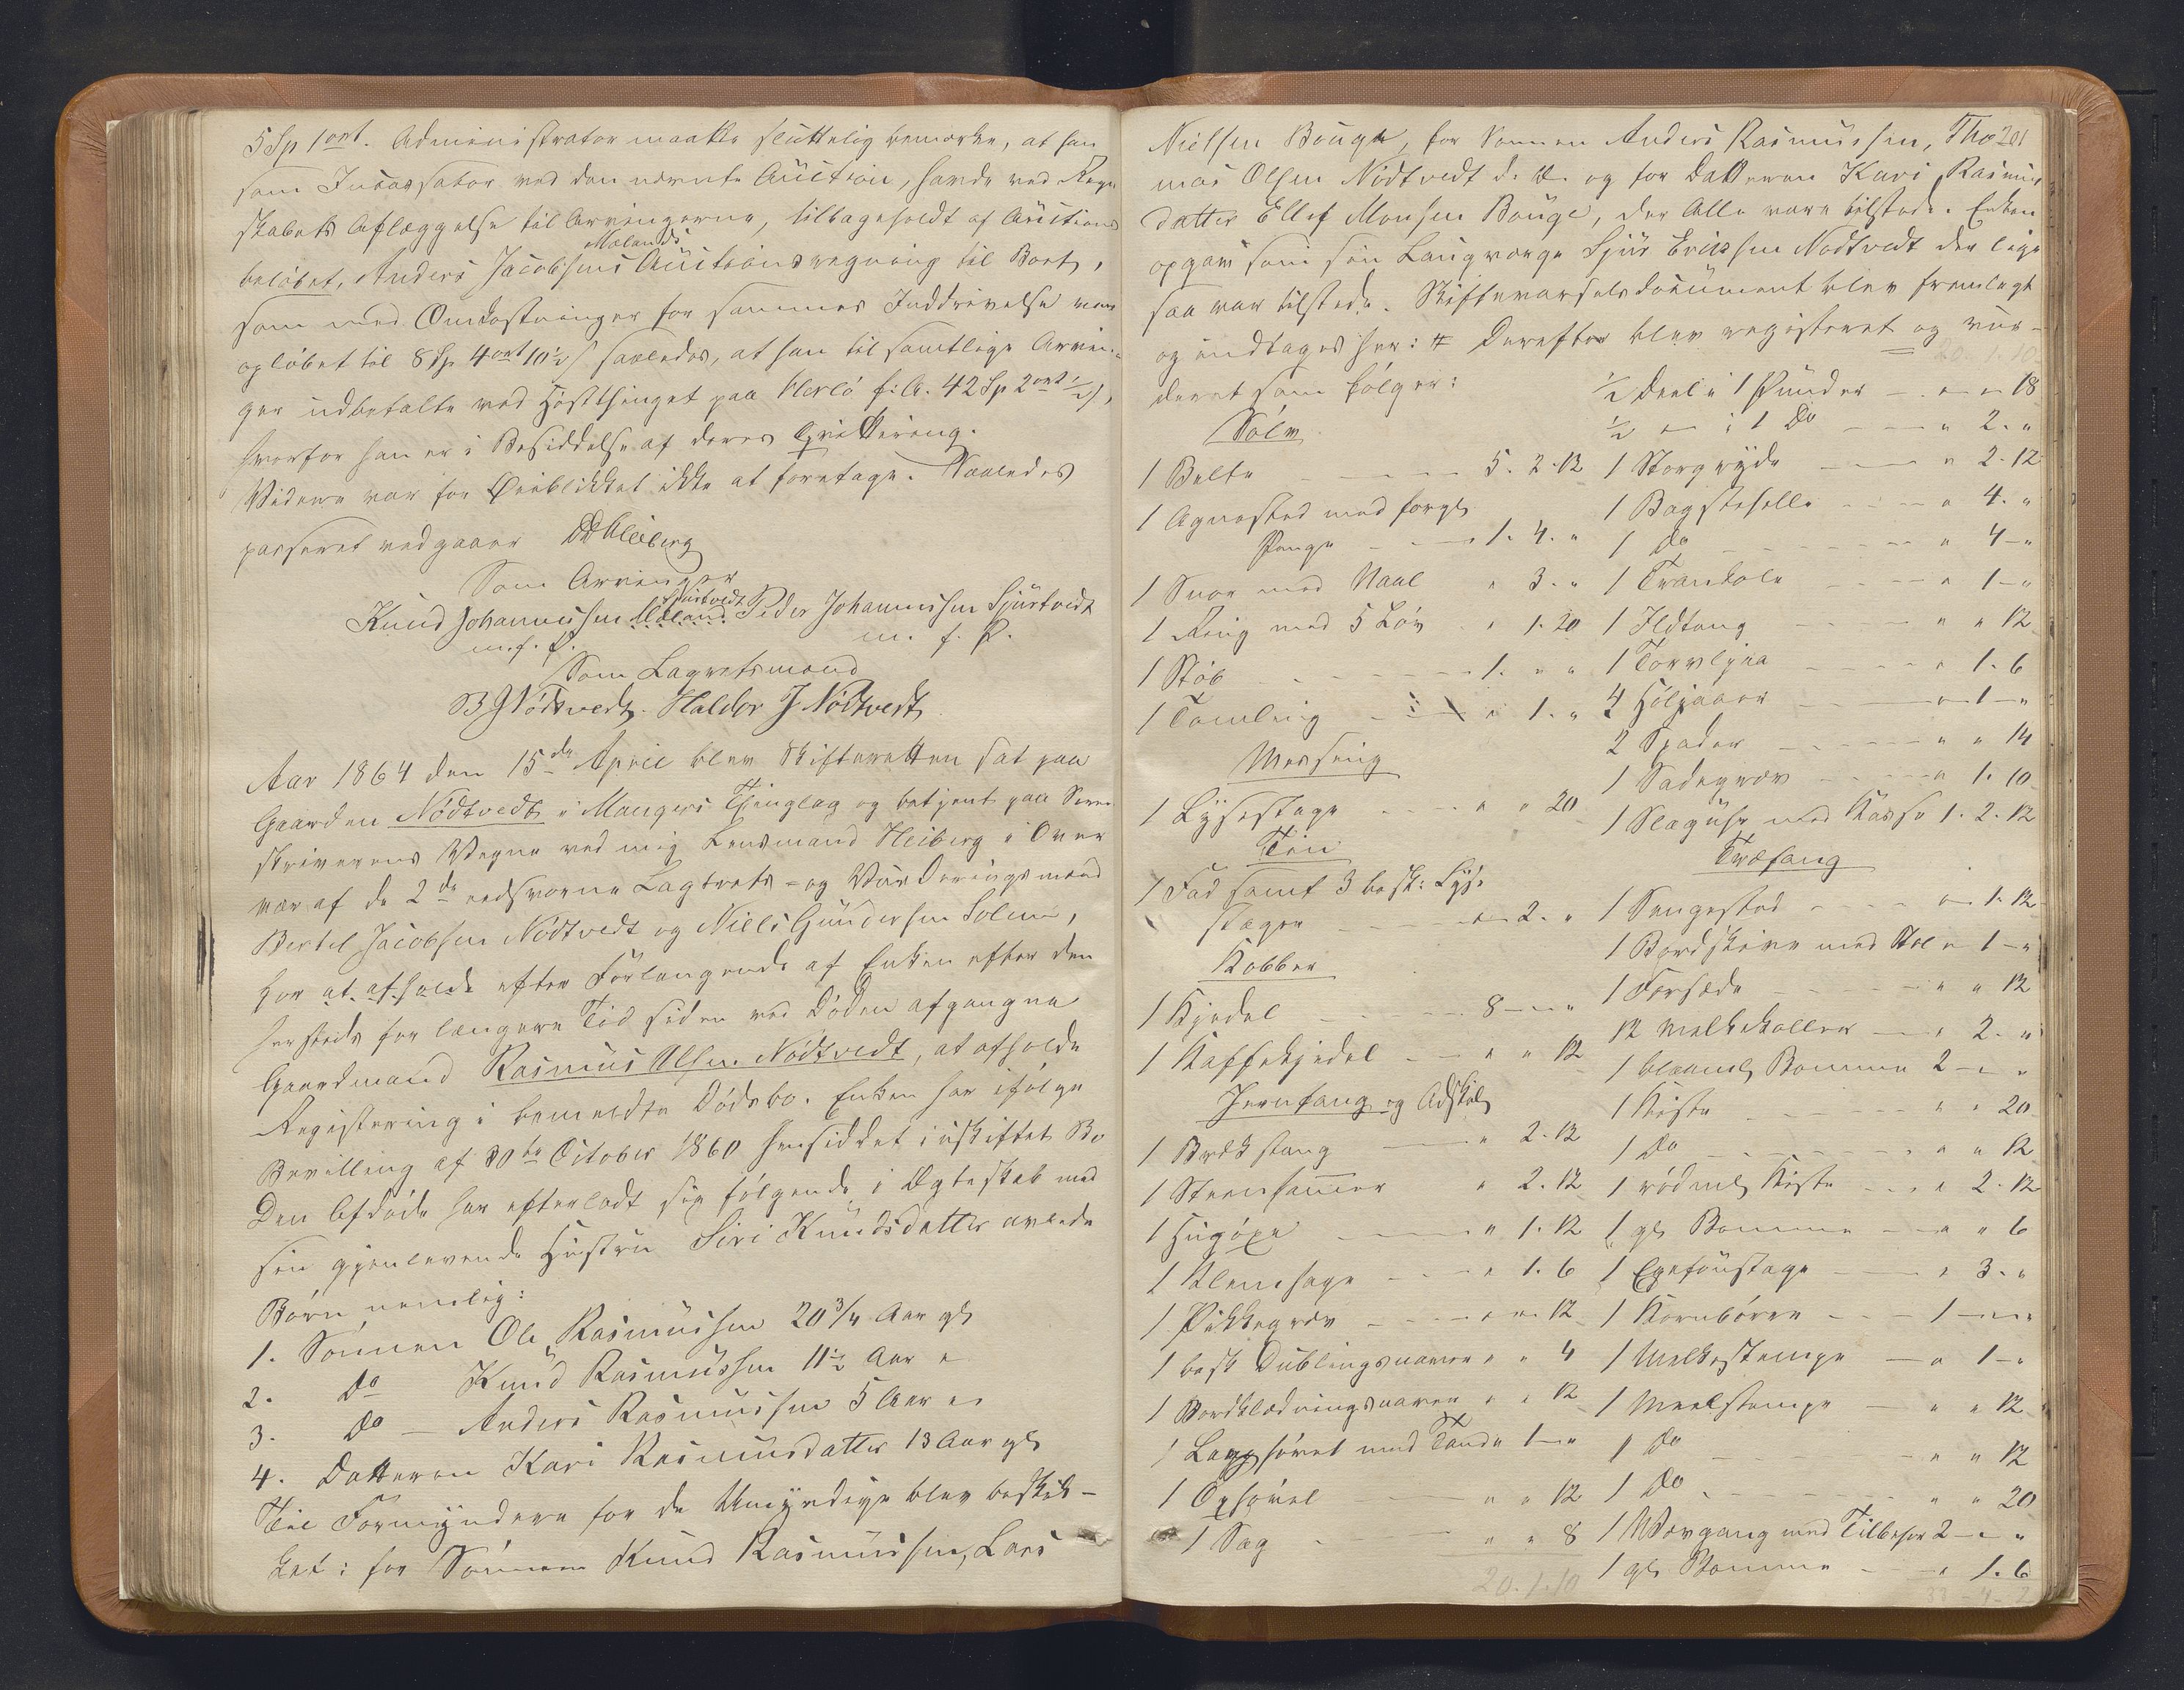 5 Sp 1 ort. Administrator maatte sluttelig bemærke, at han
som Incassator ved den nævnte Auction, havde ved Regn
skabets Aflæggelse til Arvingerne, tilbageholdt af Auctions
beløbet, Anders Jacobsens Mælands Auctionsregning til Boet,
som med Omkostninger for sammes Inddrivelse var
opløbet til 8 Sp 4 ort 10½ s saaledes, at han til samtlige Arvin-
ger udbetalte ved Høstthinget paa Herlø f: A. 42 Sp 2 ort ½ s,
hvorfor han er i Besiddelse af deres Qvittering.
Videre var for Øieblikket ikke at foretage. Saaledes
passeret vedgaaer DHeiberg
Som Arvinger
Knud Johannessen Mæland Sjurtvedt Peder Johannessen Sjurtvedt
m. f. P. m. f. P.
Som Lagretsmænd
B J Nødtvedt. Haldor J Nødtvedt
Aar 1864 den 15de April blev Skifteretten sat paa
Gaarden Nødtvedt i Mangers Thinglag og betjent paa Soren
skriverens Vegne ved mig Lensmand Heiberg i Over
vær af de 2de eedsvorne Lagrets- og Vurderingsmænd
Bertel Jacobsen Nødtvedt og Niels Gundersen Solem,
for at afholde efter Forlangende af Enken efter den
hersteds for længere Tid siden ved Døden afgangne
Gaardmand Rasmus Olsen Nødtvedt, at afholde
Registering i bemeldte Dødsbo. Enken har ifølge
Bevilling af 30te October 1860 hensiddet i uskiftet Bo
Den Afdøde har efterladt sig følgende i Ægteskab med
sin gjenlevende Hustru Siri Knudsdatter avlede
Børn nemlig:
1. Sønnen Ole Rasmussen 20¾ Aar gl
2. Do Knud Rasmussen 11½ Aar "
3. Do — Anders Rasmussen 5 Aar "
4. Datteren Kari Rasmusdatter 13 Aar gl
Til Formyndere for de Umyndige blev beskik-
ket: for Sønnen Knud Rasmussen, Lars
201
Nielsen Bouge, for Sønnen Anders Rasmussen, Tho
mas Olsen Nødtvedt og for Datteren Kari Rasmus
datter Ellef Monsen Bouge, der Alle vare tilstede. Enken
opgav som sin Laugværge Sjur Eriksen Nødtvedt der lige
saa var tilstede. Skiftevarselsdocument blev fremlagt
og indtages her: # Derefter blev registeret og vur-
deret som følger:
Sølv
1 Belte — 5. 2. 12
1 Agnested med forgl
Penge — 1. 4. "
1 Snor med Naal " 3. "
1 Ring med 5 Løv " 1. 20
1 Støb — 1. " "
1 Tomling " 1. "
Messing
1 Lysestage — " " 20
Tin
1 Fad samt 3 besk: Lyse
stager — " 2. "
Kobber
1 Kjedel — 8 — " "
1 Kaffekjedel — " " 12
Jernfang og Adskil
1 Brækstang — " 2. 12
1 Steenhammer " 2. 12
1 Hugøxe — " 1. 12
1 Klemsage — " 1. 6
1 Pikkegrev — " " 12
1 besk Dublingsnaver " " 4
1 Bordklædningsnaver " " 12
1 Lagghøvel med Tande 1 — "
1 Oxhøvel — " " 12
1 Sag — " " 8
20. 1. 10
20. 1. 10
½ Deel i 1 Punder — " " 18
½ " i 1 Do — " 2. "
1 Storgryde — " 2. 12
1 Bagstehelle — " 4. "
1 Do — " 4 — "
1 Trankole — " 1 — "
1 Ildtang — " " 12
1 Torvljaa — " 1. 6
4 Høljaaer — " 1 — "
2 Spader — " " 14
1 Sadegrev — " 1. 10
1 Slaguhr med Kasse 1. 2. 12
Træfang
1 Sengested — " 1. 12
1 Bordskive med Stol " 1 — "
1 Forsæde — " " 12
12 Melkekoller — " 2. "
1 blaaml Bomme 2 — " "
1 Kiste — " " 20
1 Do — " " 12
1 rødml Kiste — " 2. 12
1 gl Bomme — " " 6
1 Egefoustage — " 3. "
1 Kornbøren — 1 — " "
1 Melkestampe — " 1 — "
1 Meelstampe — " " 12
1 Do — " " 12
1 Do — " " 20
1 Vævgang med Tilbehør 2 — " "
1 gl Bomme — " 1. 6